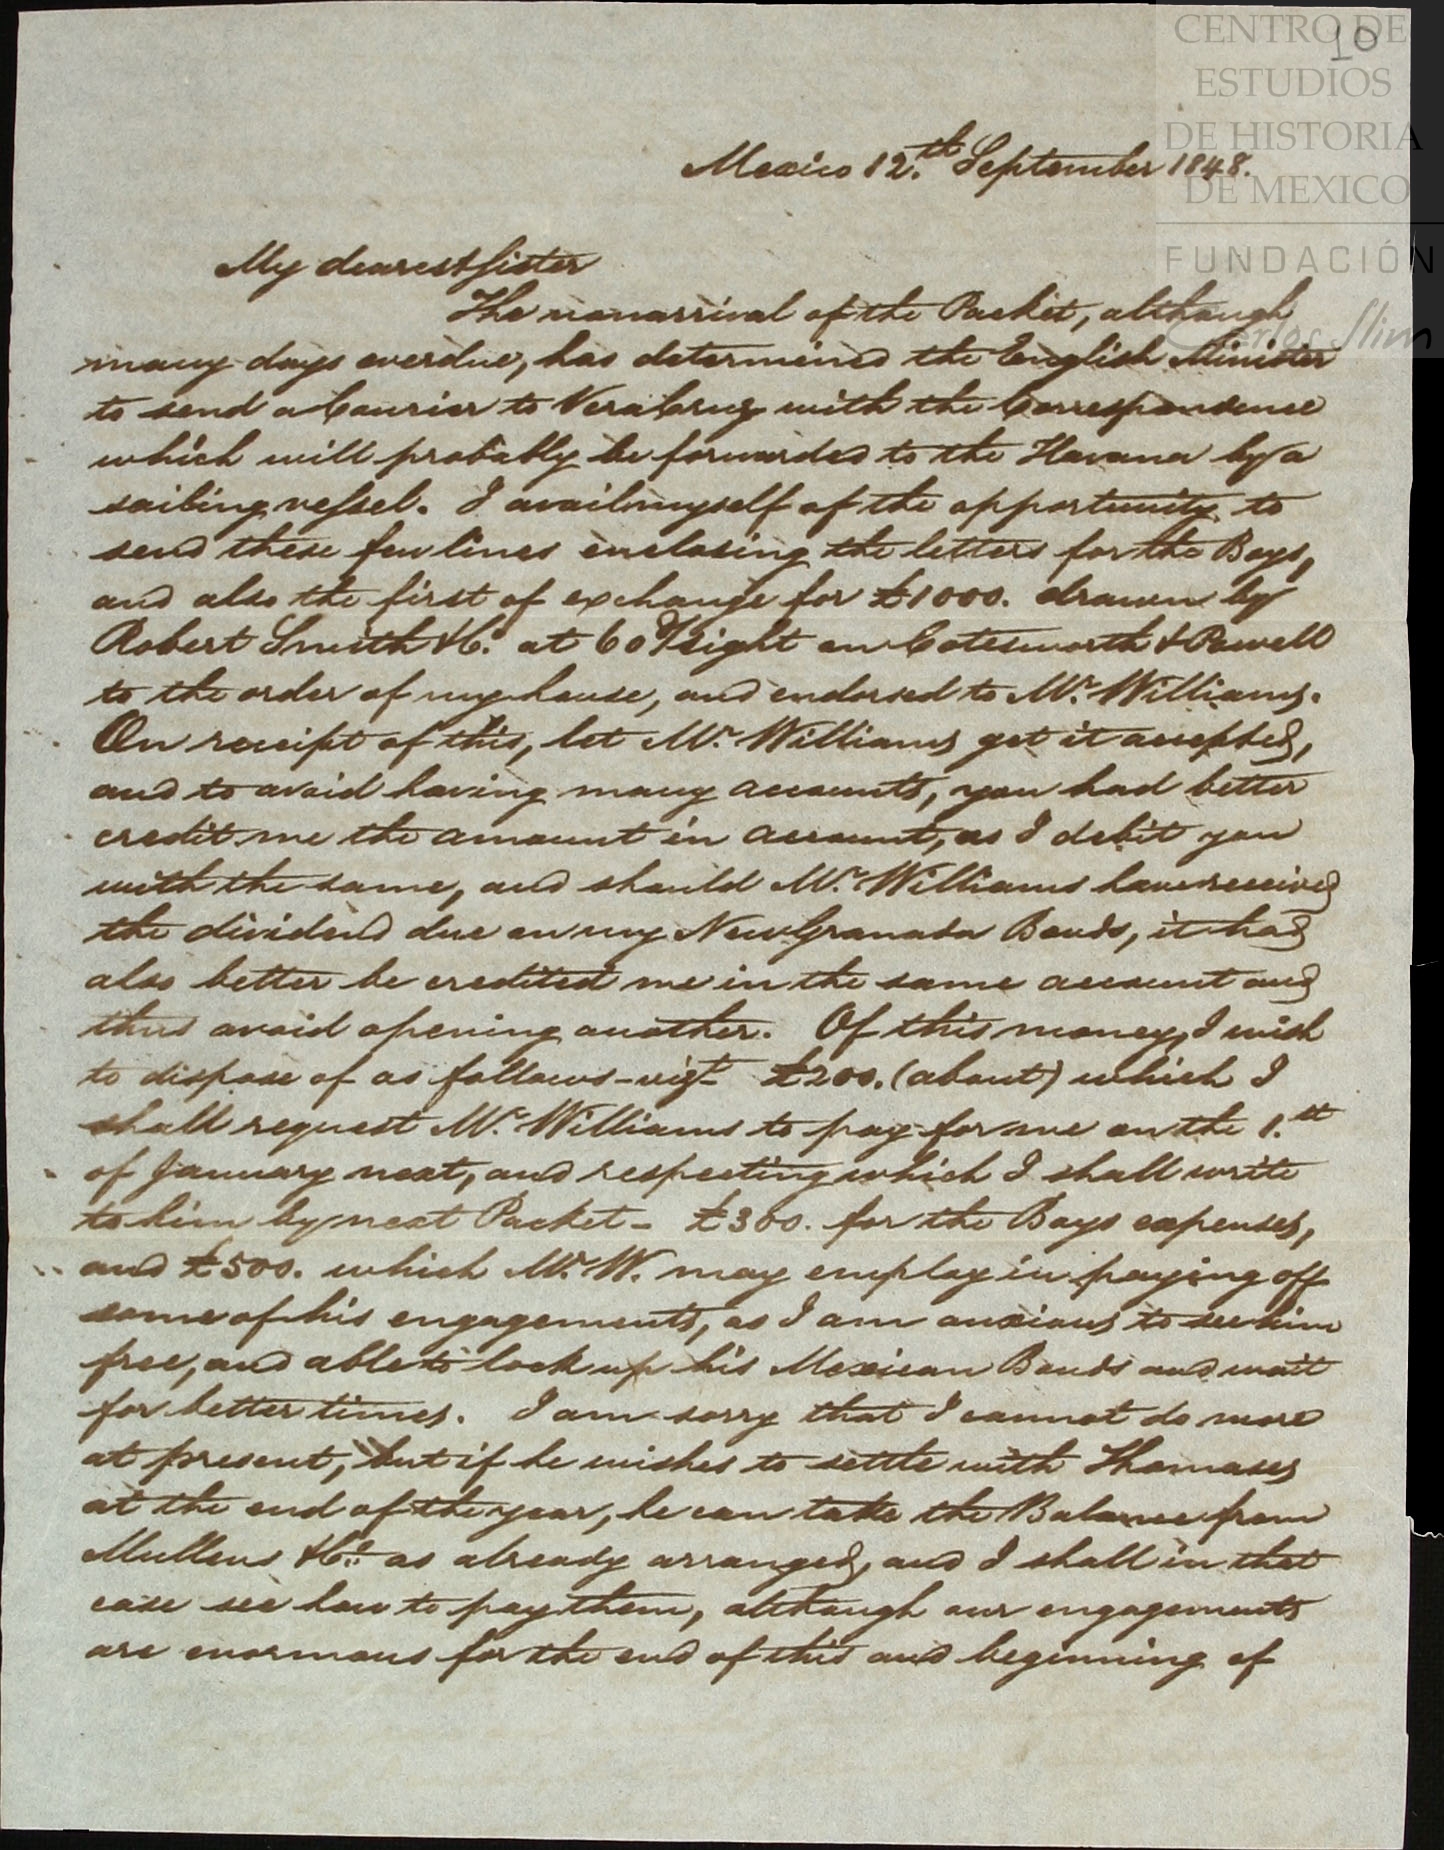 10
CENTRO DE
ESTUDIOS
DE HISTORIA
DE MEXICO
FUNDACIÓN
Carlos Slim
Mexico 12.th September 1848.
My dearest Sister
The nonarrival of the Packet, although
many days overdue, has determined the English Minister
to send a Courier to Vera Cruz with the Correspondence
which will probably be forwarded to the Havana by a
sailing vessel. I avail myself of the opportunity to
send these few lines enclosing the letters for the Boys,
and also the first of exchange for £1000. drawn by
Robert Smith & Co. at 60 d/sight on Cotesworth & Powell
to the order of my house, and endorsed to Mr. Williams.
On receipt of this, let Mr. Williams get it accepted,
and to avoid having many accounts, you had better
credit me the amount in account, as I debit you
with the same, and should Mr. Williams have received
the dividend due on my New Granada Bonds, it had
also better be credited me in the same account and
thus avoid opening another. Of this money, I wish
to dispose of as follows - vizt - £200. (about) which I
shall request Mr. Williams to pay for me on the 1.st
of January next, and respecting which I shall write
to him by next Packet - £300. for the Boys expenses,
and £500. which Mr. W. may employ in paying off
some of his engagements, as I am anxious to see him
free, and able to lock up his Mexican Bonds and wait
for better times. I am sorry that I cannot do more
at present, but if he wishes to settle with Thomases
at the end of the year, he can take the Balance from
Mullens & Co. as already arranged, and I shall in that
case see how to pay them, although our engagements
are enormous for the end of this and beginning of